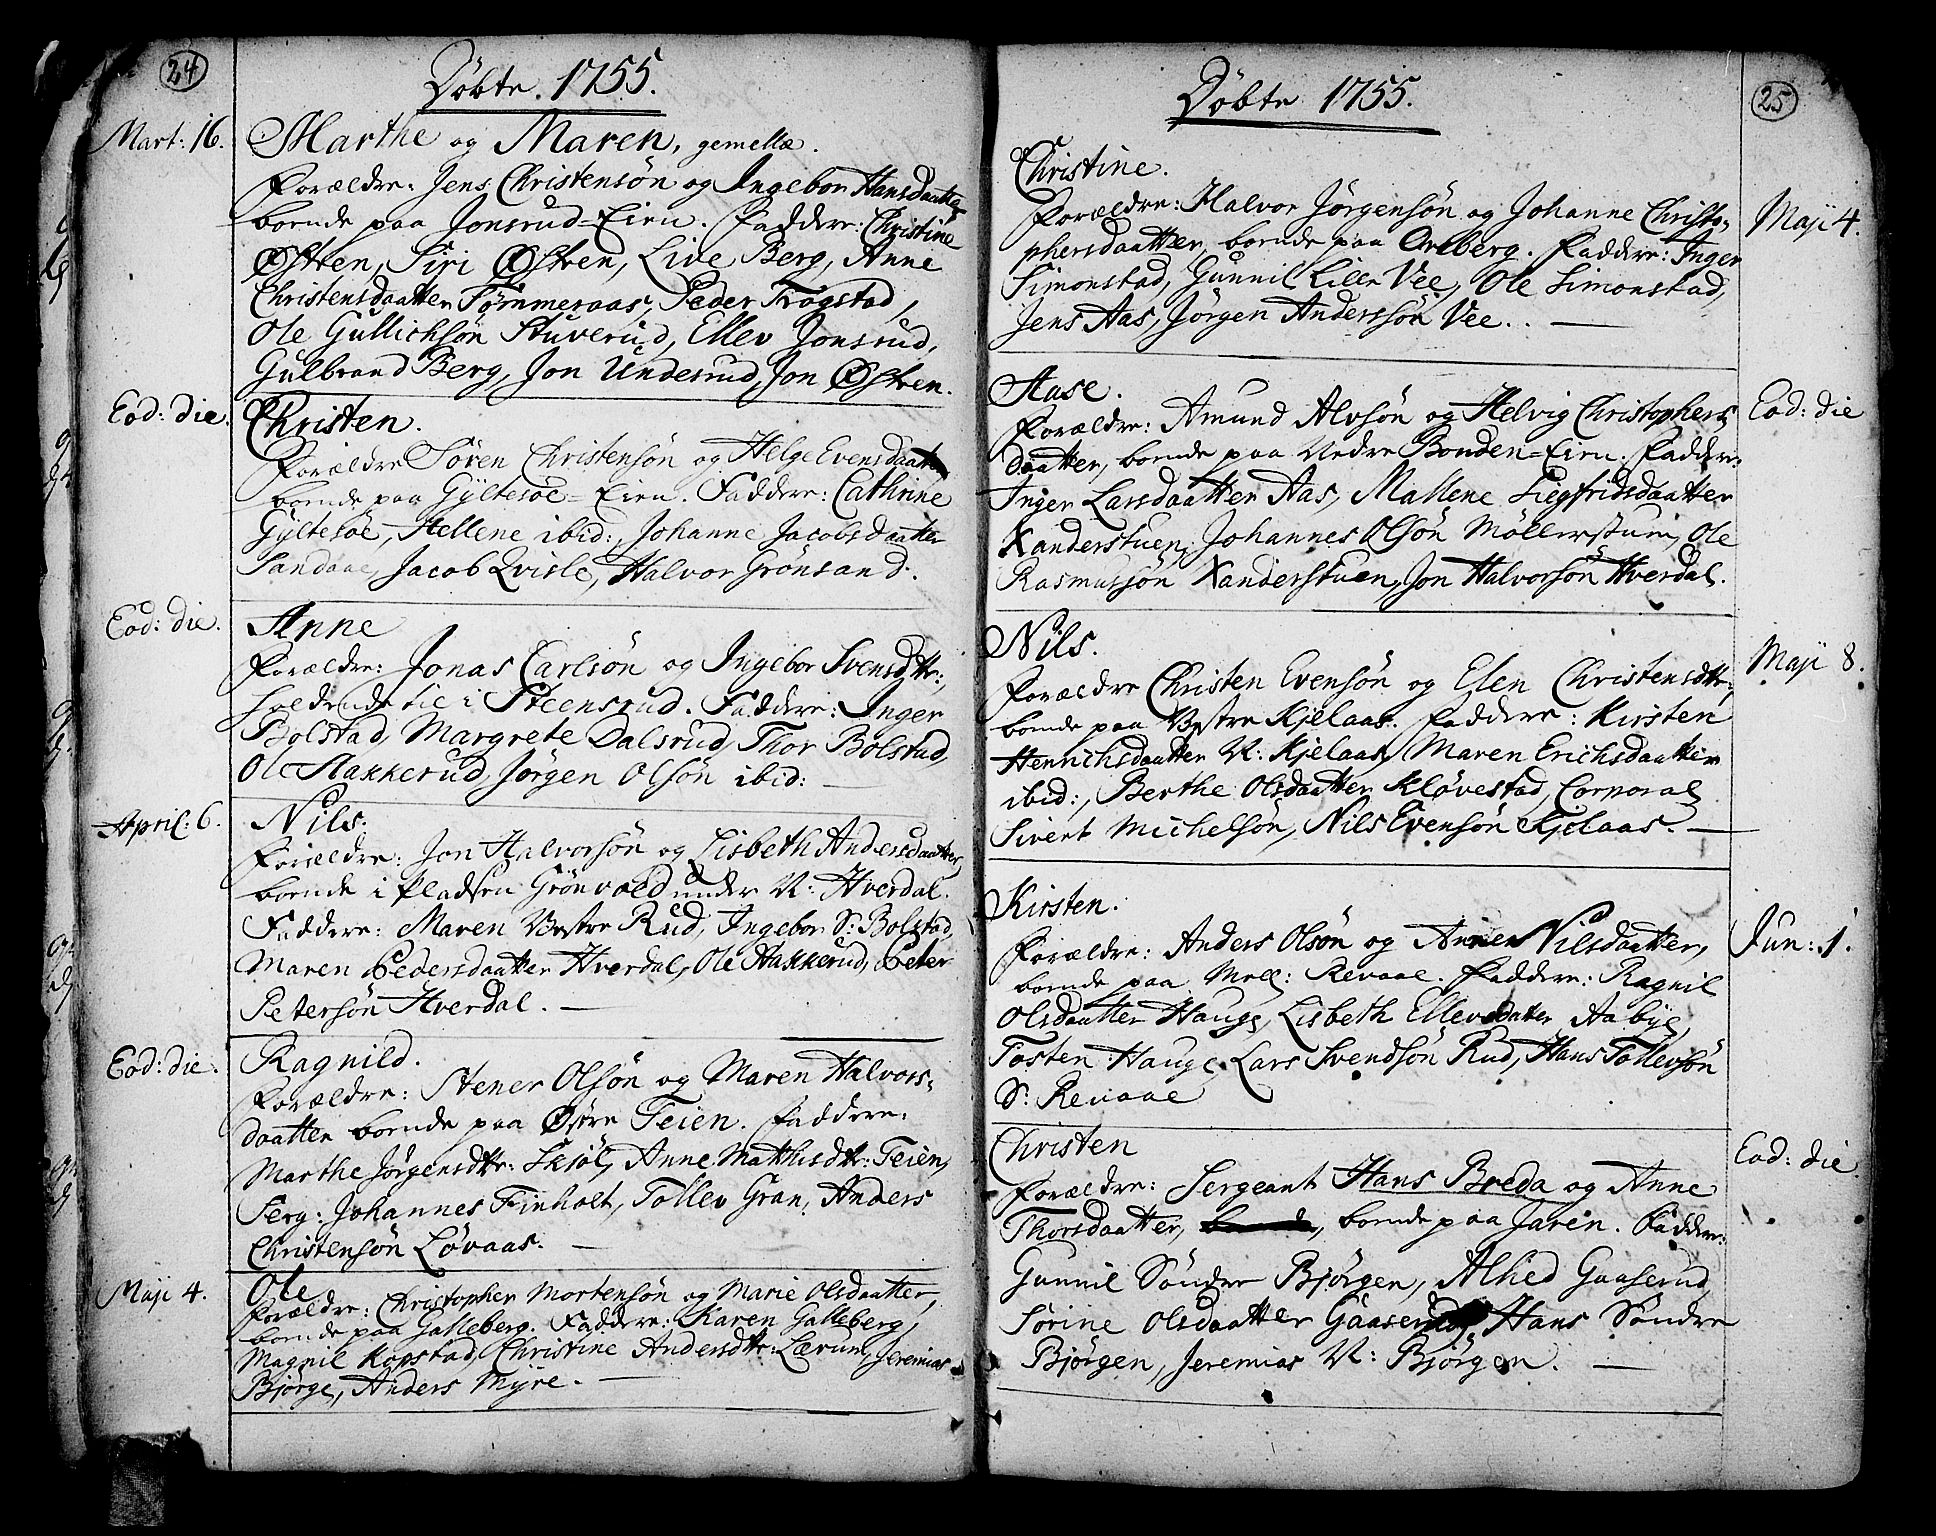 24
Döbte. 1755.
Mart: 16.
Marthe og Maren, gemellæ.
Forældre: Jens Christensön og Ingebor Hansdaatter
boende paa Jonsrud-Eien. Faddere: Christine
Østren, Siri Østren, Live Berg, Anne
Christensdaatter Tømmeraas, Peder Trogstad,
Ole Gullichsön Stuverud, Ellev Jonsrud,
Gulbrand Berg, Jon Underud, Jon Østren.
Eod: die.
Christen.
Forældre Søren Christensön og Helge Evensdaatter
boende paa Gyltesøe-Eien. Faddere: Cathrine
Gyltesøe, Hellene ibid:, Johanne Jacobsdaatter
Sandaae, Jacob Qvisle, Halvor Grönsand.
Eod: die.
Anne
Forældre: Jonas Carlsön og Ingebor Svensdttr:,
holdende til i Steensrud. Faddere: Inger
Bolstad, Margrete Dalsrud, Thor Bolstad,
Ole Hakkerud, Jørgen Olsön ibid:
April: 6.
Nils.
Forældre: Jon Halvorsön og Lisbeth Andersdaatter,
boende i Pladsen Grönvold under N: Hverdal.
Faddere: Maren Vestre Rud, Ingebor S: Bolstad,
Maren Pedersdaatter Hverdal, Ole Hakkerud, Peter
Petersön Hverdal.
Eod: die.
Ragnild.
Forældre: Stener Olsön og Maren Halvors-
daatter boende paa Østre Teien. Faddere:
Marthe Jørgensdttr: Skjöl, Anne Matthisdttr: Teien,
Serg: Johannes Finholt, Tollev Gran, Anders
Christensön Løvaas.
Maji 4.
Ole
Forældre: Christopher Mortensön og Marie Olsdaatter,
boende paa Galleberg. Faddere: Karen Galleberg,
Magnil Kopstad, Christine Andersdttr: Lærum, Jeremias
Bjørge, Anders Myre.
25
Döbte 1755.
Christine.
Maji 4.
Forældre: Halvor Jørgensön og Johanne Christo-
phersdaatter, boende paa Ovelberg. Faddere: Inger
Simonstad, Gunnil Lille Vee, Ole Simonstad,
Jens Aas, Jørgen Anderssön Vee.
Aase.
Eod: die
Forældre: Amund Alvsön og Helvig Christophers
daatter, boende paa Nedre Bonden-Eien. Faddere:
Inger Larsdaatter Aas, Mallene Siegfridsdaatter
Xanderstuen, Johannes Olsön Möllerstuen, Ole
Rasmussön Xanderstuen, Jon Halvorsön Hverdal.
Nils.
Maji 8.
Forældre Christen Evensön og Elen Christensdttr:,
boende paa Vestre Kjelaas. Faddere: Kirsten
Henrichsdaatter N: Kjelaas, Maren Erichsdaatter
ibid:, Berthe Olsdaatter Kløvestad, Corporal
Sivert Michelsön, Nils Evensön Kjelaas.
Kirsten.
Jun: 1.
Forældre: Anders Olsön og Anne Nilsdaatter,
boende paa Mell: Revaae. Faddere: Ragnil
Olsdaatter Hauge, Lisbeth Ellevsdatter Aabye,
Tosten Hauge, Lars Svendsön Rud, Hans Tollevsön
S: Revaae
Christen
Eod: die
Forældre: Sergeant Hans Breda og Anne
Thorsdaatter, boende paa Jaren. Faddere:
Gunnil Söndre Bjørgen, Alhed Gaaserud,
Sørine Olsdaatter Gaaserud, Hans Söndre
Bjørgen, Jeremias N: Bjørgen.